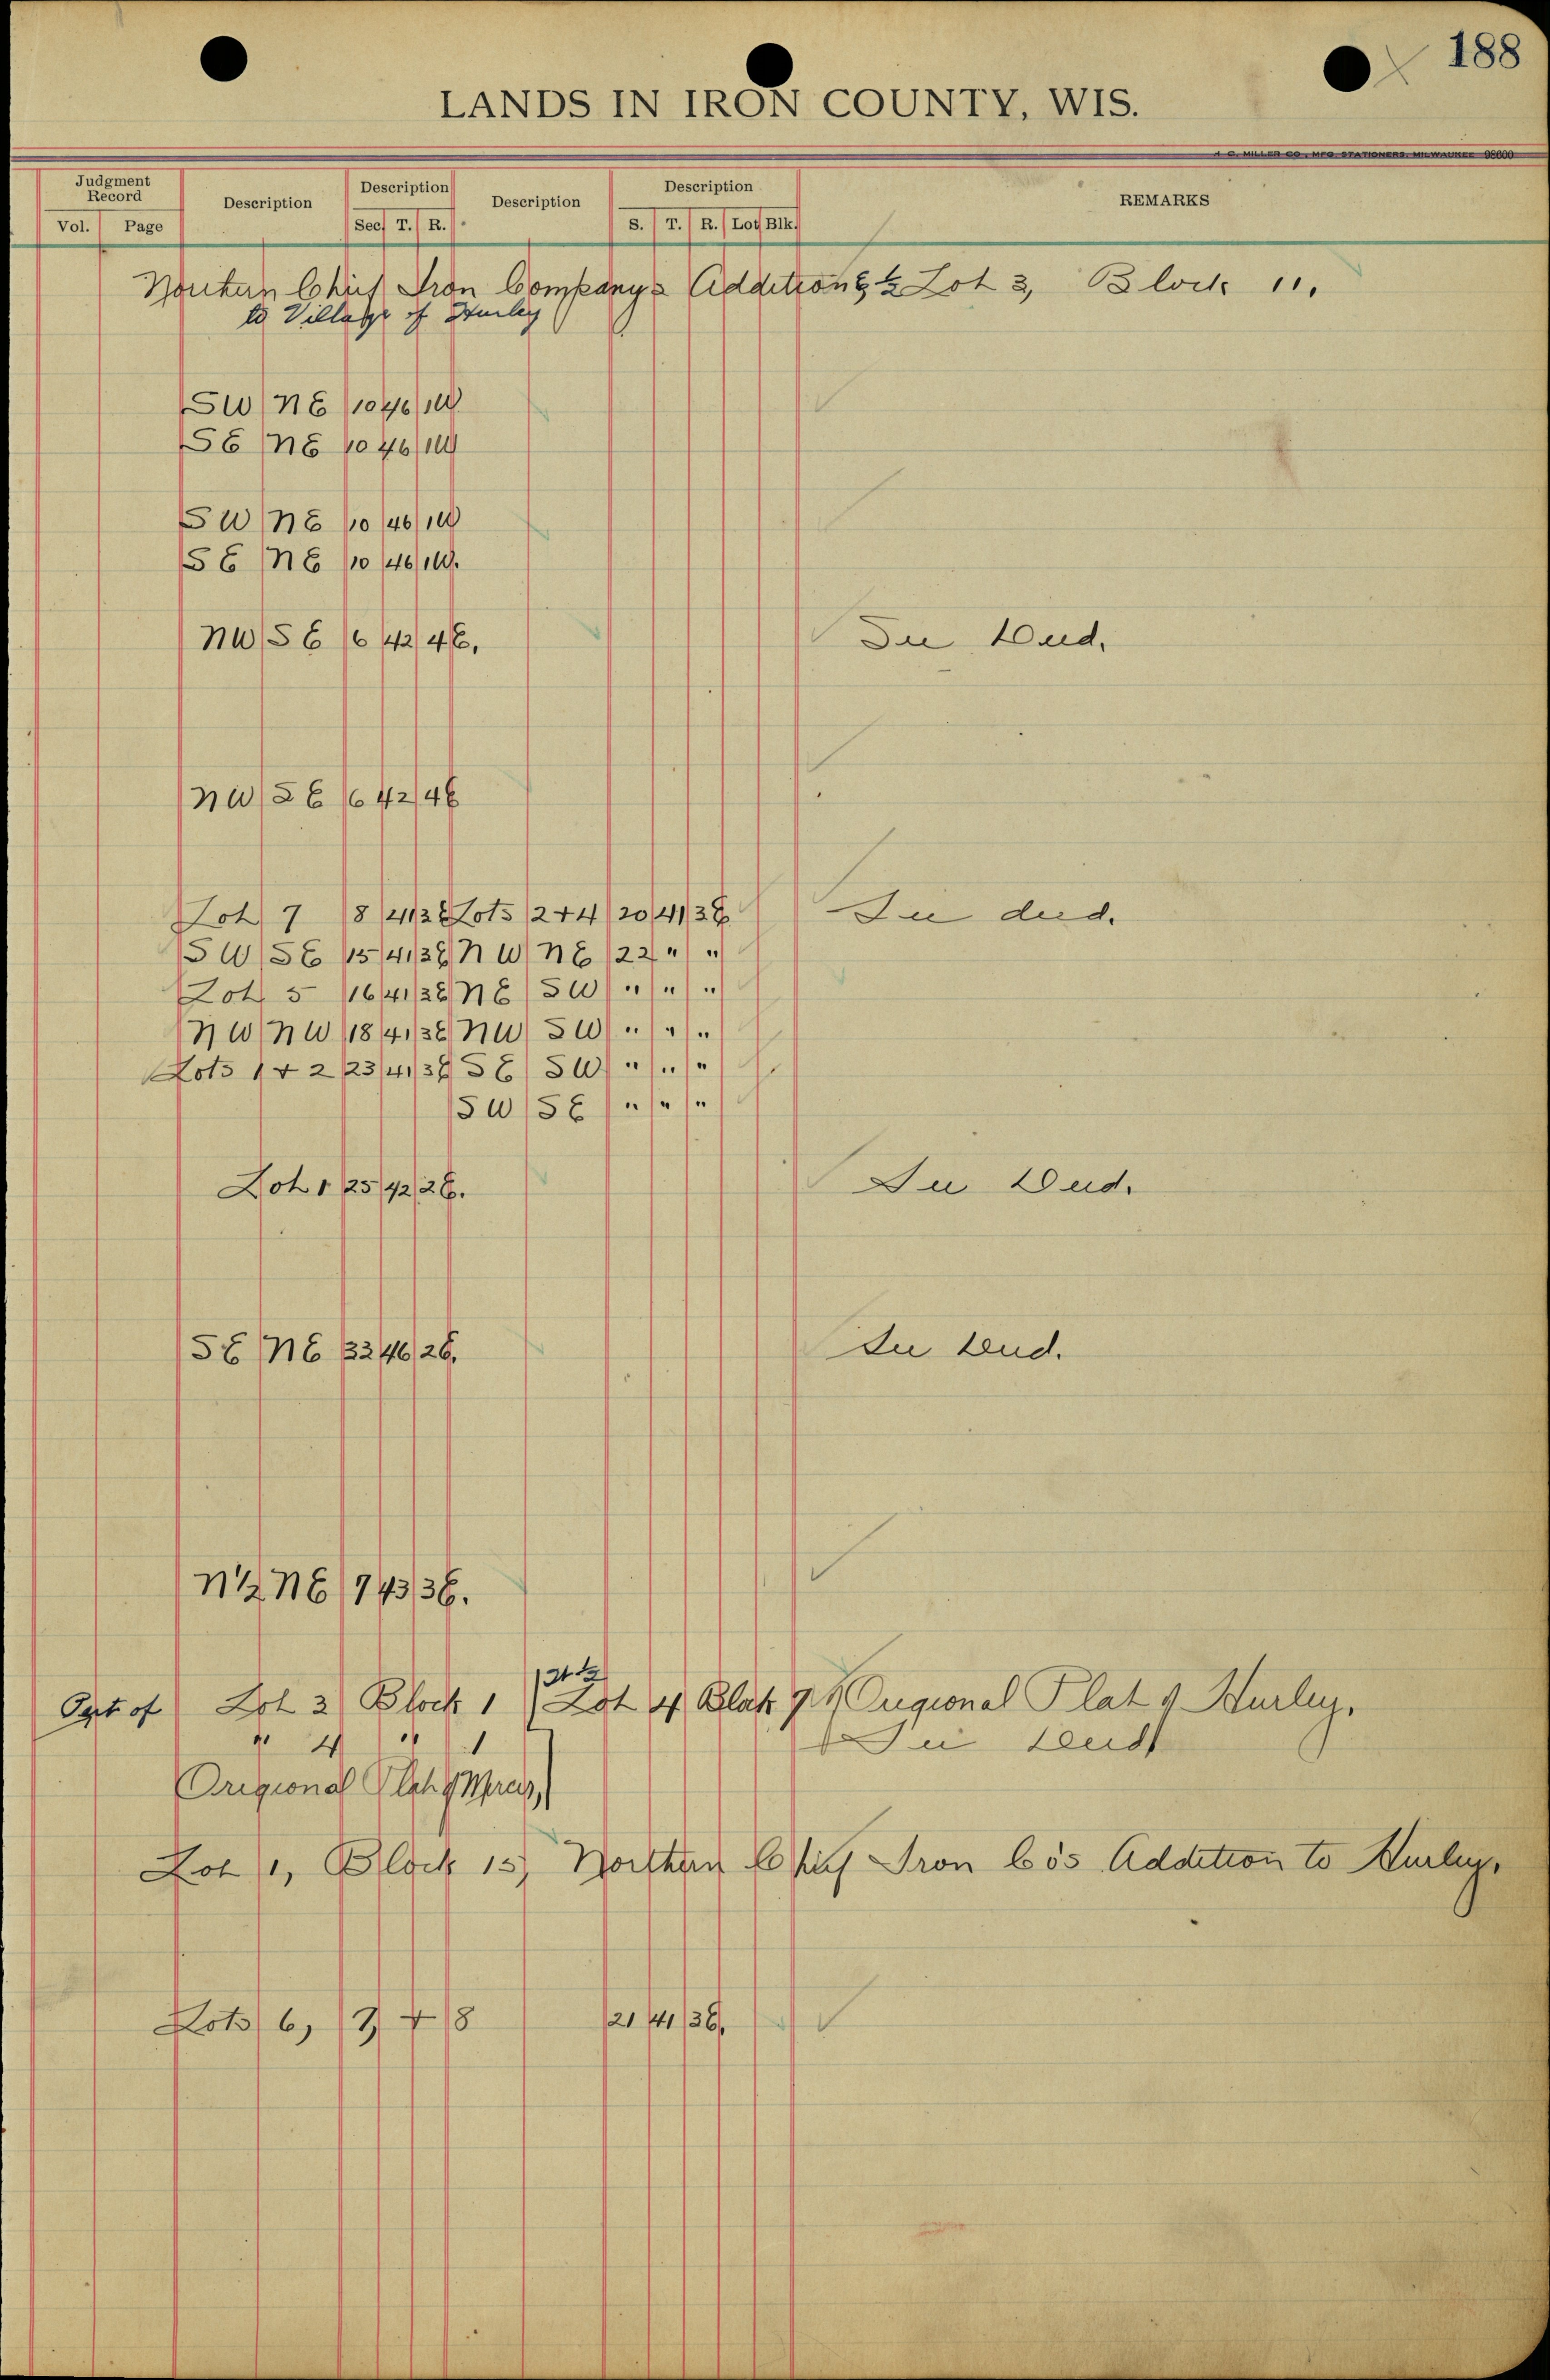 188
LANDS IN IRON COUNTY, WIS.
H. C. MILLER CO., MFG. STATIONERS, MILWAUKEE 98600
Judgment Record Description Description Description Description REMARKS
Vol. Page Sec T. R. S. T. R. Lot Blk.
Northern Chief Iron Company's Addition E ½ Lot 3, Block 11.
to Village of Hurley
SW NE 10 46 1W
SE NE 10 46 1W
SW NE 10 46 1W
SE NE 10 46 1W.
NW SE 6 42 4E. See Deed.
NW SE 6 42 4E
Lot 7 8 41 3E Lots 2+4 20 41 3E See deed.
SW SE 15 41 3E NW NE 22 " "
Lot 5 16 41 3E NE SW " " "
NW NW 18 41 3E NW SW " " "
Lots 1 + 2 23 41 3E SE SW " " "
SW SE " " "
Lot 1 25 42 2E. See Deed.
SE NE 32 46 2E. See Deed.
N½ NE 7 43 3E.
Part of Lot 3 Block 1 Lot 4 Block 7 Origional Plat of Hurley.
" 4 " 1 See Deed
Origional Plat of
Lot 1, Block 15, Northern Chief Iron Co's Addition to Hurley.
Lots 6, 7 + 8 21 41 3E.